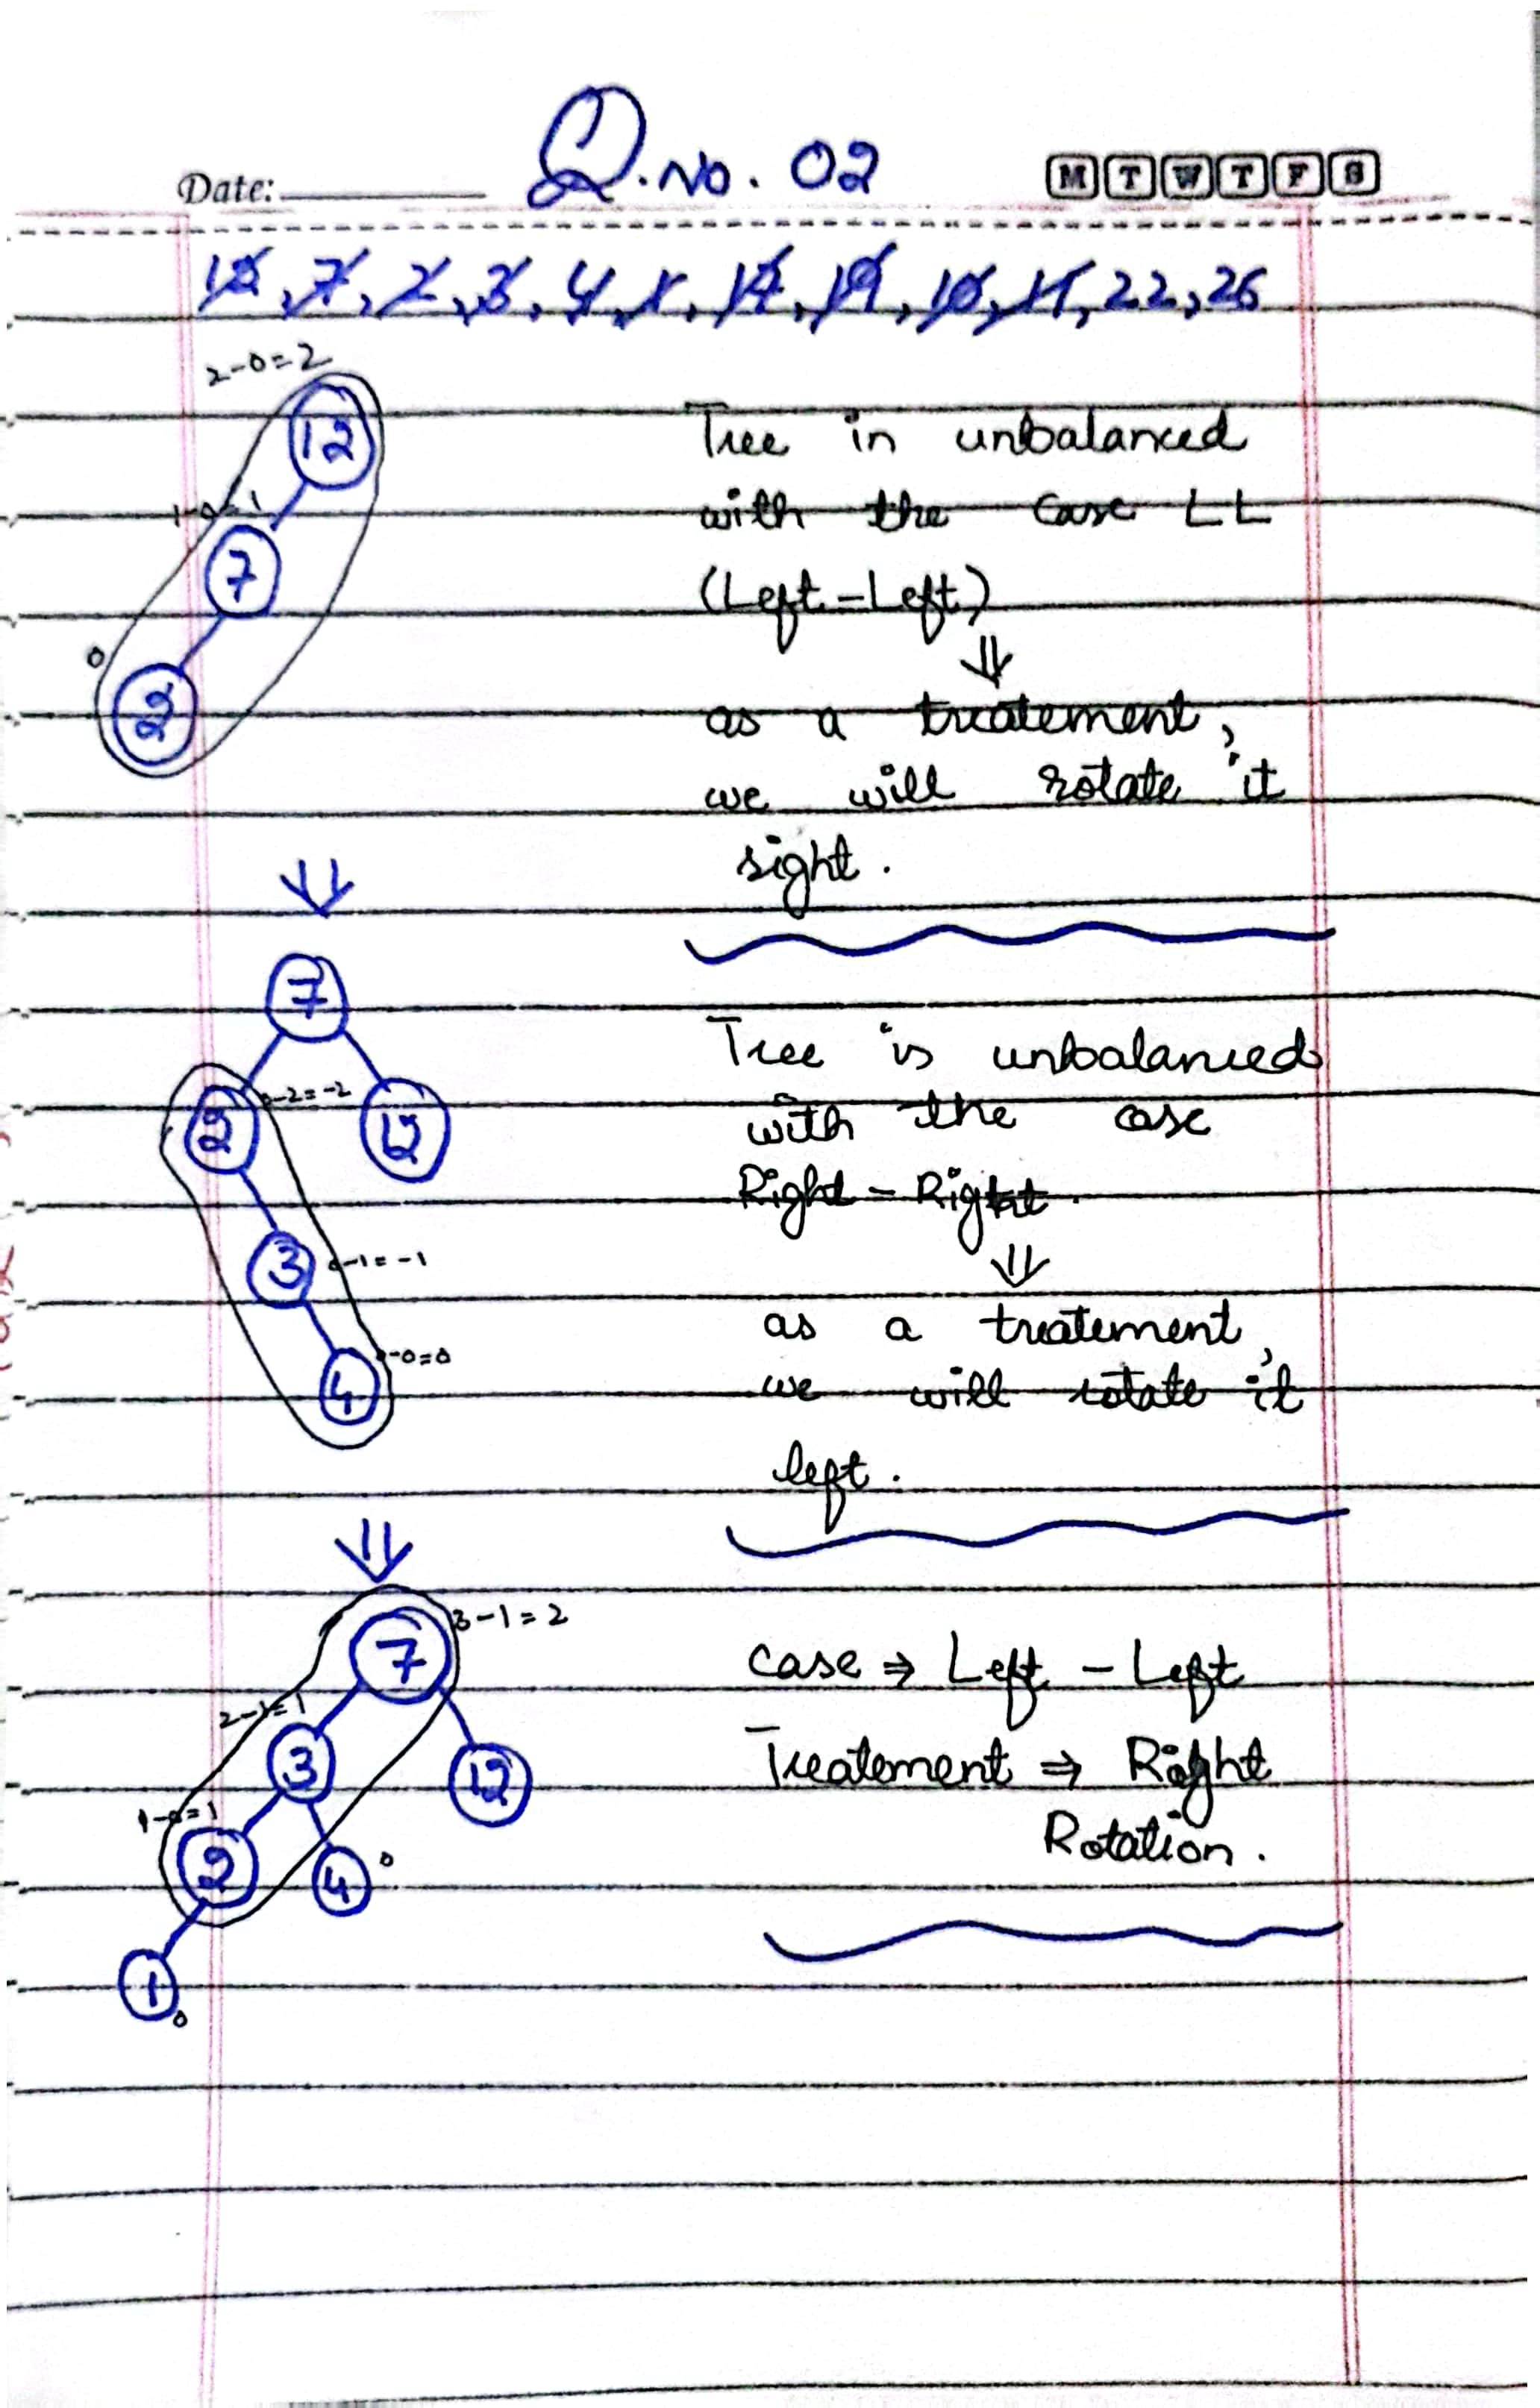 Q.No. 02
Date:
M T W T F S
12, 7, 2, 3, 4, 1, 14, 19, 10, 11, 22, 26
2-0=2
12
1-0=1
7
0
2
Tree in unbalanced
with the case LL
(Left-Left)
⇓
as a treatement,
we will rotate it
right.
⇓
7
2 0-2=-2
12
3 0-1=-1
4 0-0=0
Tree is unbalanced
with the case
Right - Right.
⇓
as a treatement,
we will rotate it
left.
⇓
7 3-1=2
2-1=1
3
12
1-0=1
2
4 0
1 0
case ⇒ Left - Left
Treatement ⇒ Right
Rotation.